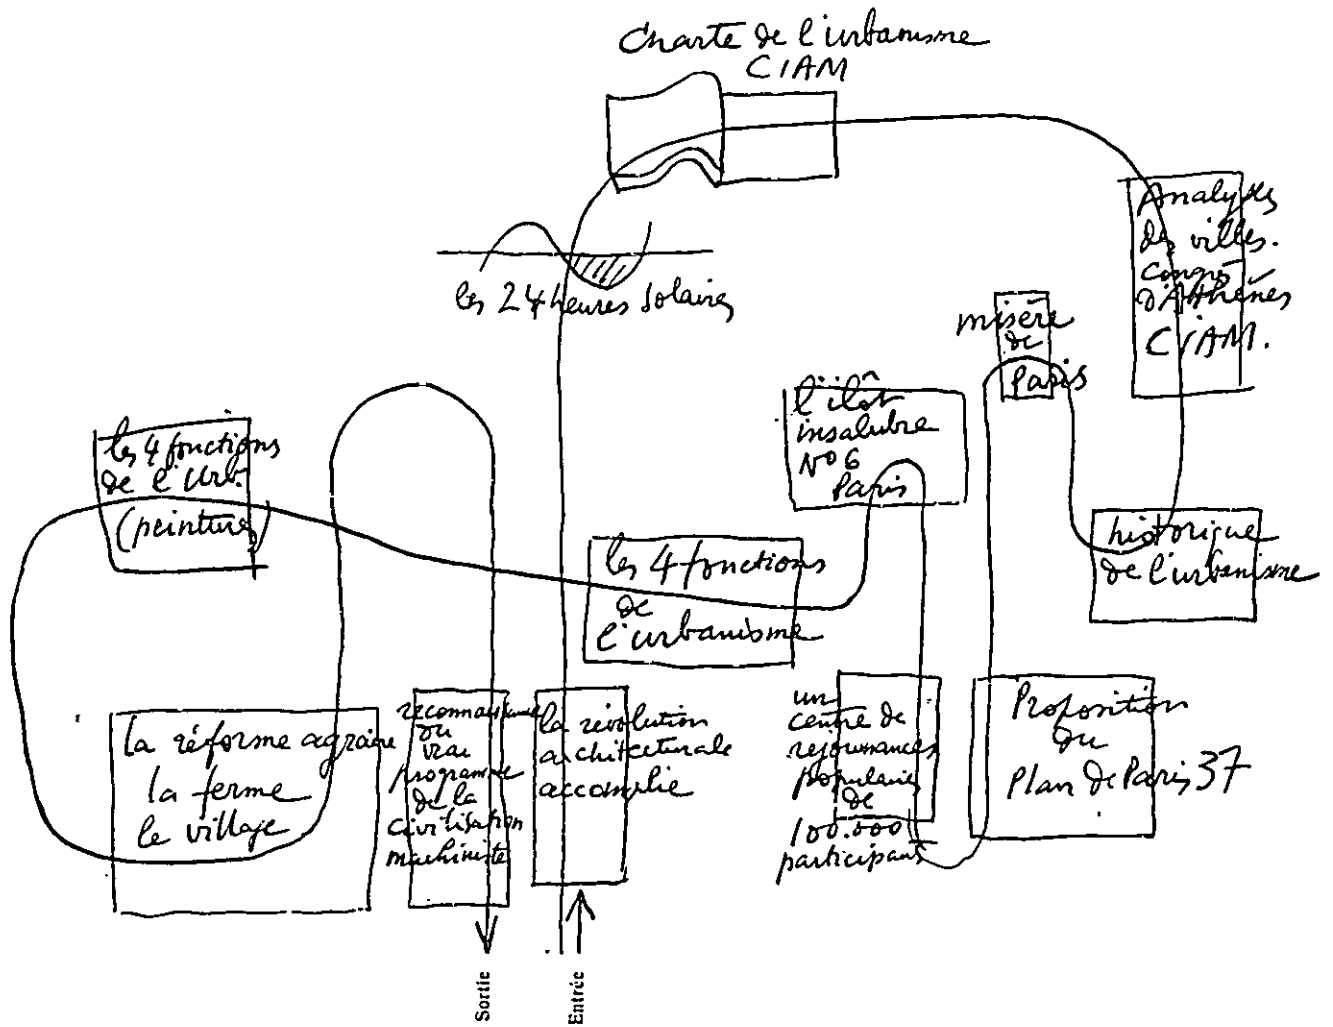 Charte de l'urbanisme
CIAM
Analyses
des villes.
congrès
d'Athènes
CIAM.
les 24 heures solaires
misère
de
Paris
l'ilôt
insalubre
No 6
Paris
les 4 fonctions
de l'Urb.
(peintures)
historique
de l'urbanisme
les 4 fonctions
de
l'urbanisme
la réforme agraire
la ferme
le village
reconnaissance
du
vrai
programme
de la
civilisation
machiniste
la révolution
architecturale
accomplie
un
centre de
rejouissances
populaires
de
100.000
participants
Proposition
du
Plan de Paris 37
Sortie
Entrée